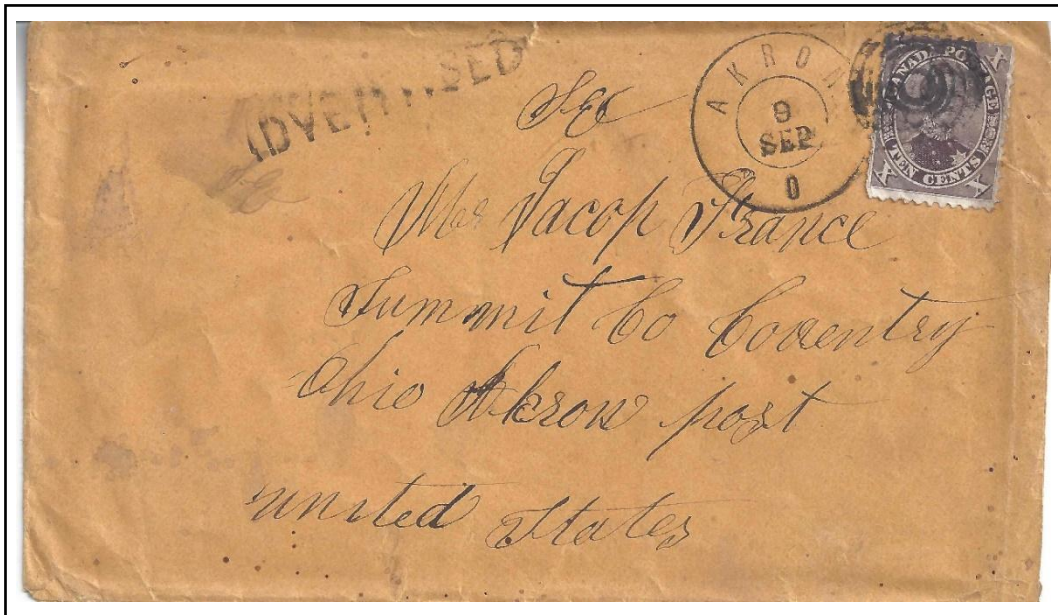 ADVERTISED
AKRON
9
SEP
O
CANADA POSTAGE
TEN CENTS
X
X
X
Mr Jacop France
Summit Co Coventry
Ohio Akron post
united States